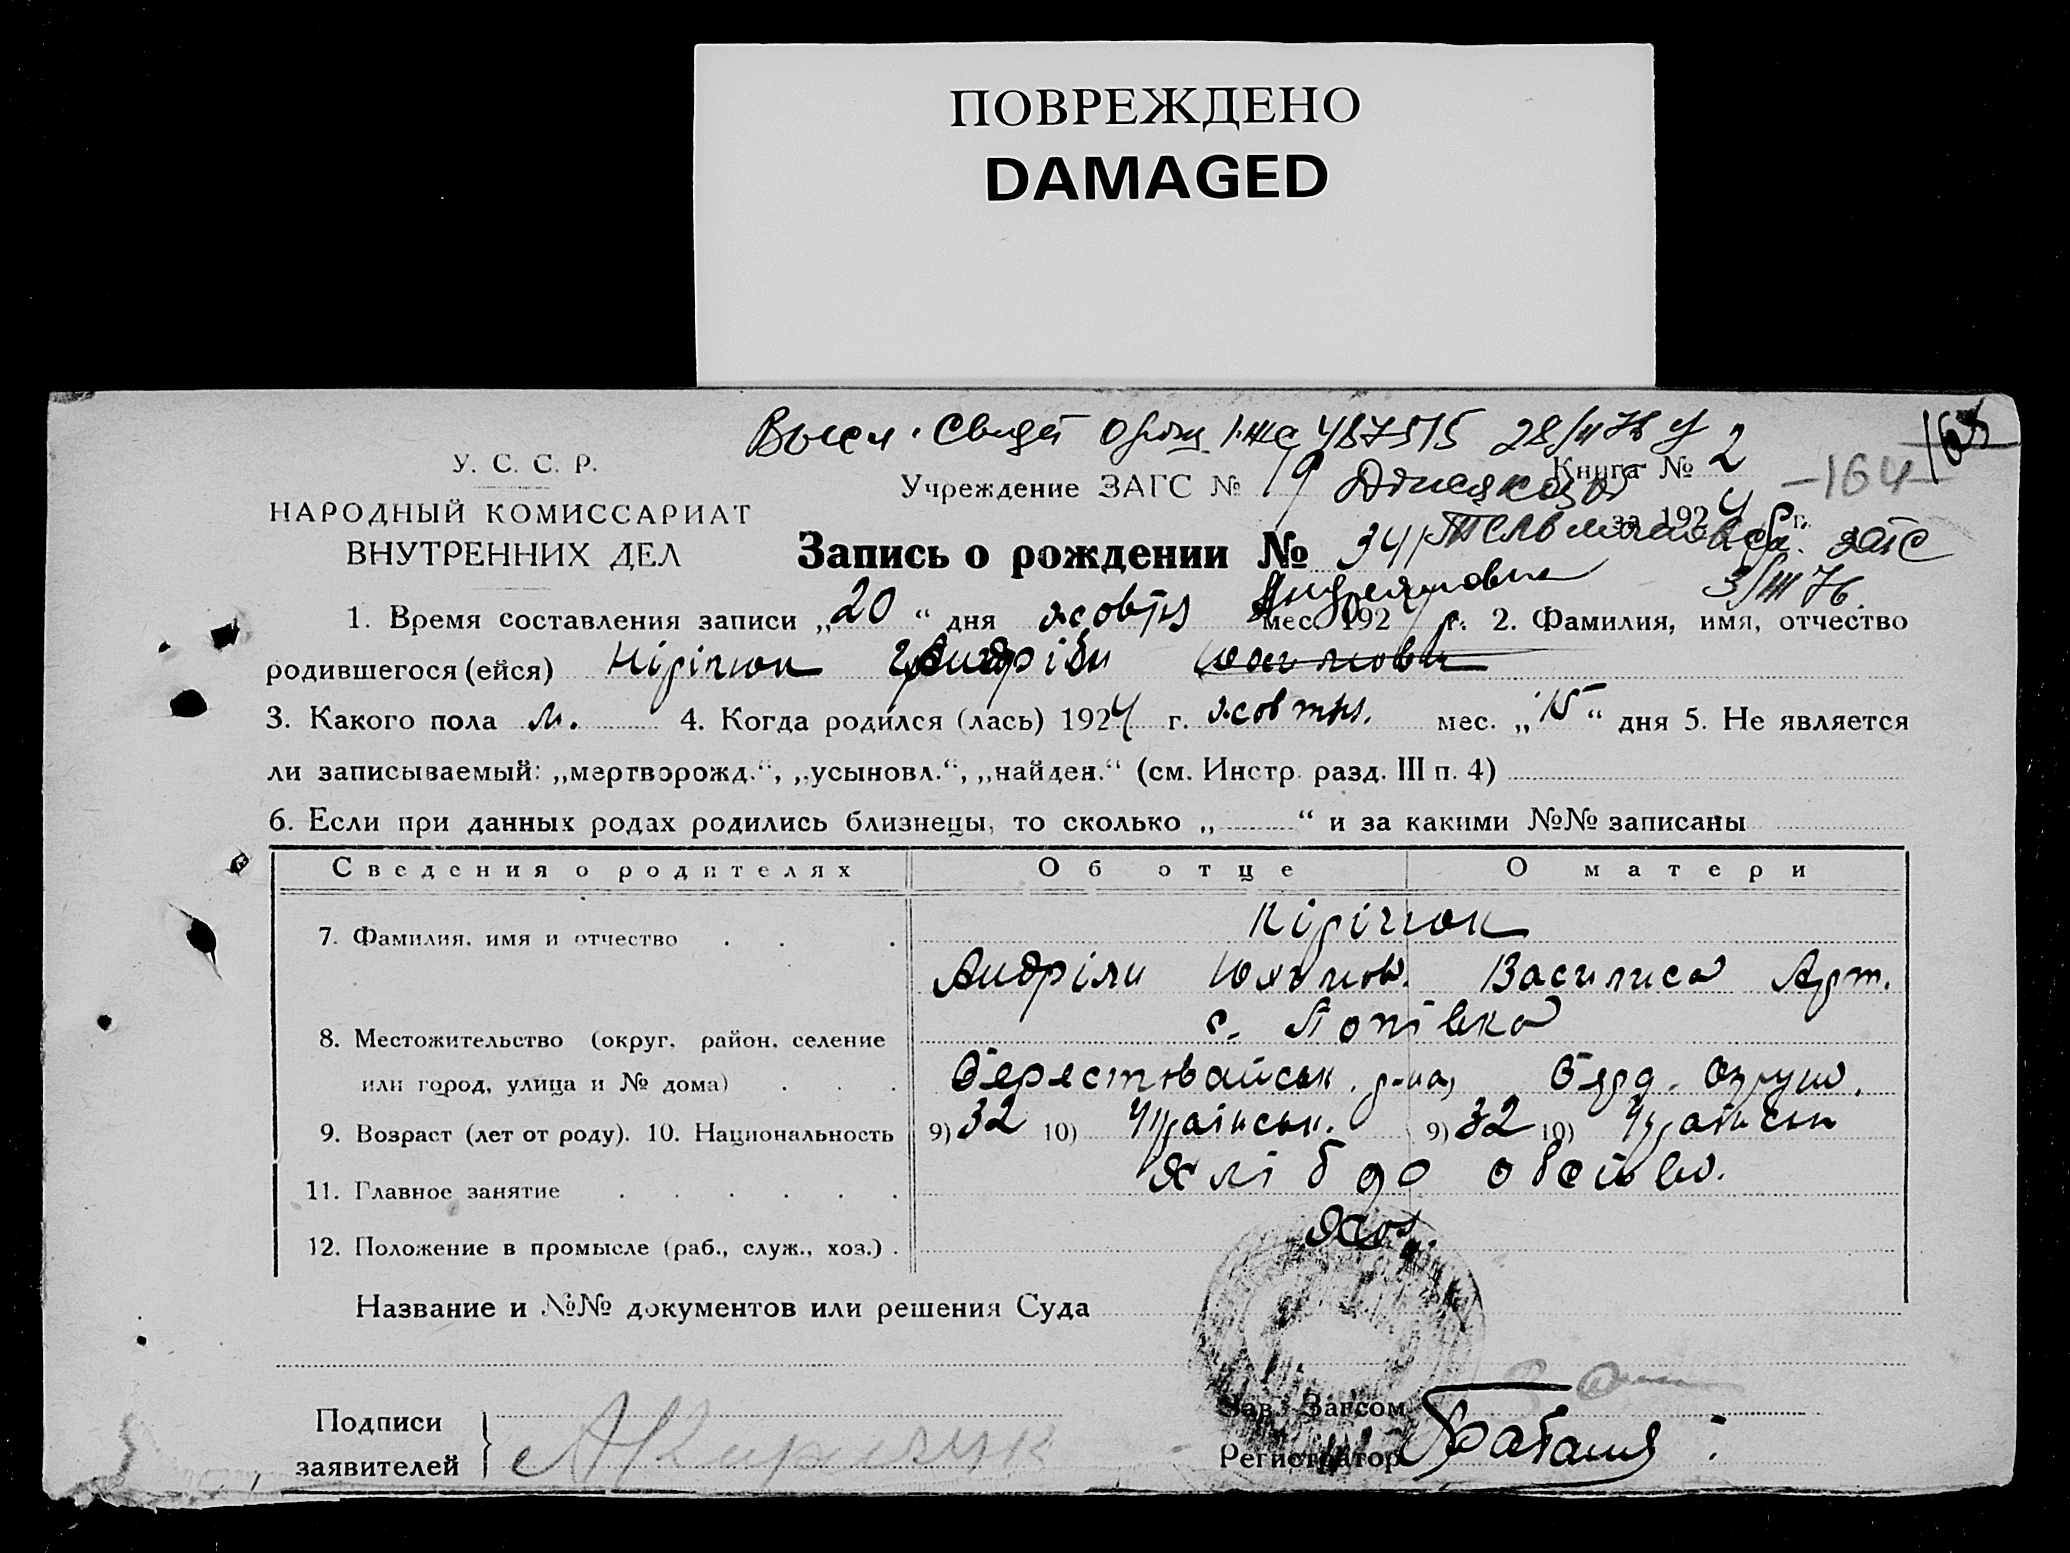 ПОВРЕЖДЕНО
DAMAGED
487515 28/ 76
У. С. С. Р.
НАРОДНЫЙ КОМИССАРИАТ
ВНУТРЕННИХ ДЕЛ
Учреждение ЗАГС № 19 Книга № 2
164
за 1924 г.
Запись о рождении № 341
загс
3/III 76.
1. Время составления записи „20“ дня жовтня мес. 192 г. 2. Фамилия, имя, отчество
родившегося (ейся) Андріян
3. Какого пола м. 4. Когда родился (лась) 1924 г. жовтня. мес. „15“ дня 5. Не является
ли записываемый: „мертворожд.“, „усыновл.“, „найден.“ (см. Инстр. разд. III п. 4)
6. Если при данных родах родились близнецы, то сколько „ “ и за какими №№ записаны
Сведения о родителях Об отце О матери
7. Фамилия, имя и отчество
Андріян Василиса Арт.
с. Попівка
8. Местожительство (округ, район, селение
или город, улица и № дома) Берестовайськ. р-на, Берд. округи.
9. Возраст (лет от роду). 10. Национальность 9) 32 10) Українськ. 9) 32 10) Українськ
11. Главное занятие хлібо
12. Положение в промысле (раб., служ., хоз.) Хоз.
Название и №№ документов или решения Суда
Подписи
заявителей
Зав. Загсом
Регистратор